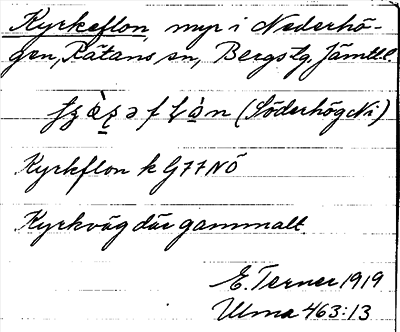 Kyrkeflon, myr i Nederhö-
gen, Rätans sn, Bergs tg, Jämtl.l.
(Söderhög Ni)
Kyrkflon k G77 NÖ
Kyrkväg där gammalt.
E. Terner 1919
Ulma 463:13